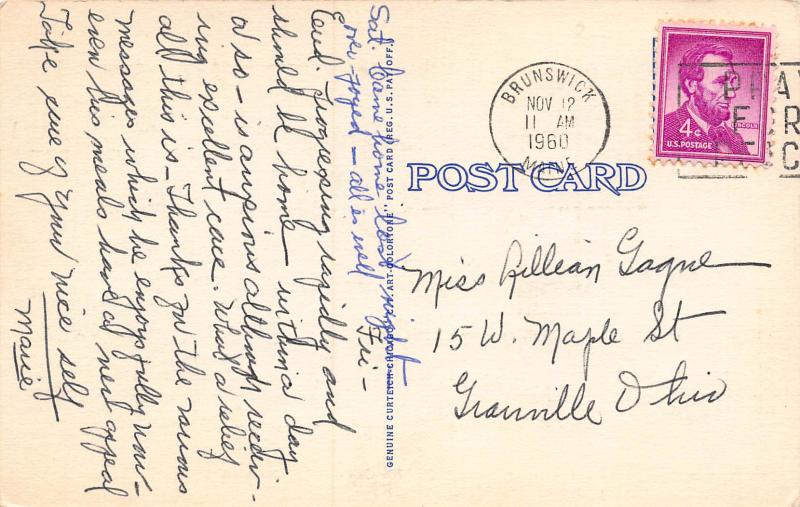 Sat. Came home last night
over-joyed - all is well
Fri -
Earl progressing rapidly and
should be home within a day
or so - is anxious although receiv-
ing excellent care. What a relief
all this is - Thanks for the various
messages which he enjoys fully now -
even his meals have a new appeal
Take care of your nice self
Marie
GENUINE CURTEICH-CHICAGO "C.T. ART-COLORTONE" POST CARD (REG. U.S. PAT. OFF.)
POST CARD
BRUNSWICK
NOV 12
11 AM
1960
MAINE
LINCOLN
4¢
U.S. POSTAGE
Miss Lillian Gagne
15 W. Maple St
Granville Ohio